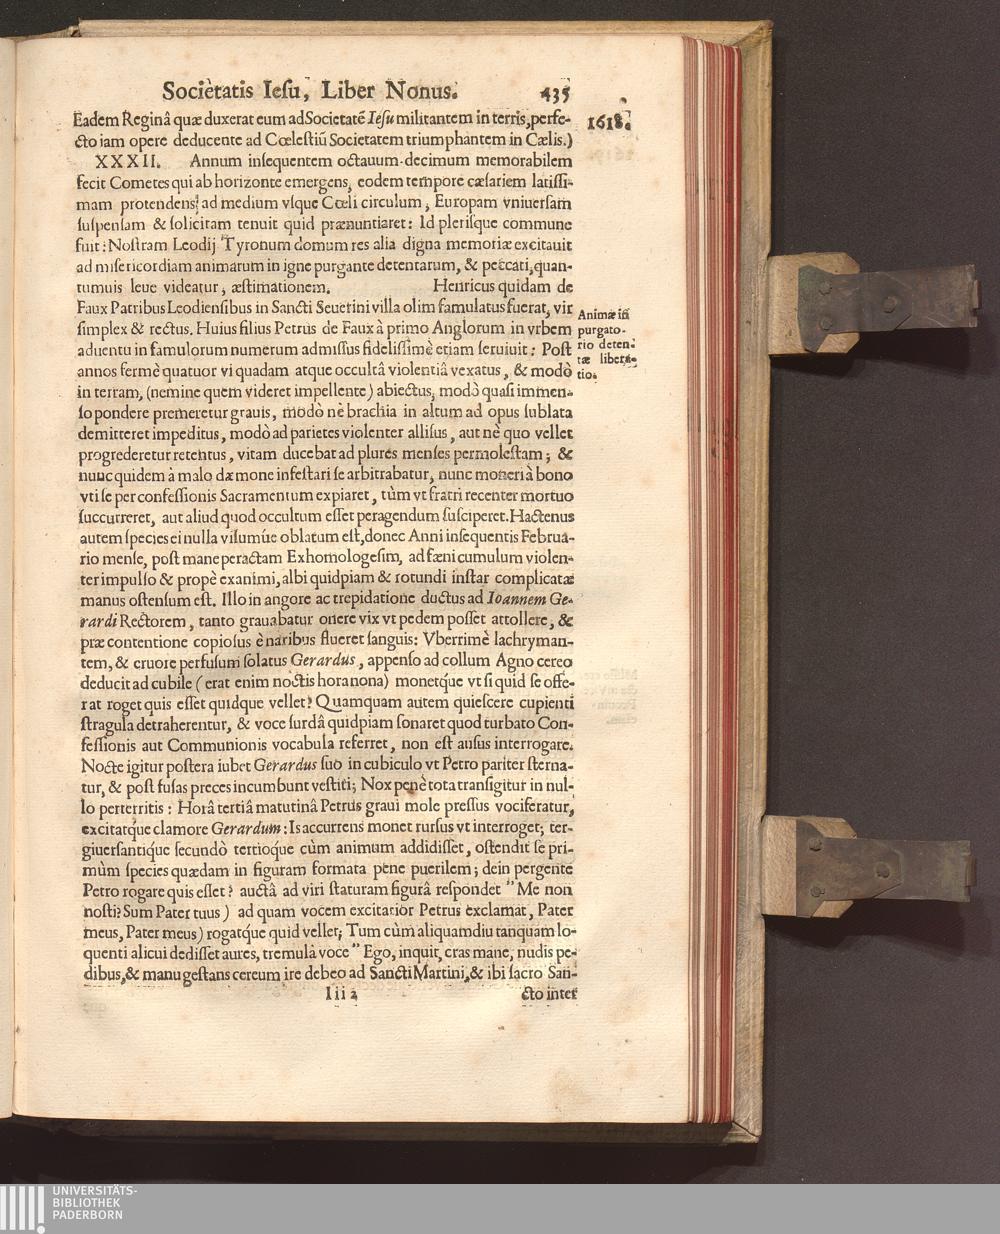 Societatis Iesu, Liber Nonus. 435
1618.
Eadem Reginâ quæ duxerat eum ad Societatē Iesu militantem in terris, perfe-
cto iam opere deducente ad Cœlestiū Societatem triumphantem in Cælis.)
XXXII. Annum insequentem octauum-decimum memorabilem
fecit Cometes qui ab horizonte emergens, eodem tempore cæsariem latissi-
mam protendens ad medium vsque Cœli circulum, Europam vniuersam
suspensam & solicitam tenuit quid prænuntiaret: Id plerisque commune
fuit: Nostram Leodij Tyronum domum res alia digna memoriæ excitauit
ad misericordiam animarum in igne purgante detentarum, & peccati, quan-
tumuis leue videatur, æstimationem. Henricus quidam de
Faux Patribus Leodiensibus in Sancti Seuerini villa olim famulatus fuerat, vir
simplex & rectus. Huius filius Petrus de Faux à primo Anglorum in vrbem
aduentu in famulorum numerum admissus fidelissimè etiam seruiuit: Post
annos fermè quatuor vi quadam atque occultâ violentiâ vexatus, & modò
in terram, (nemine quem videret impellente) abiectus, modò quasi immen-
so pondere premeretur grauis, modò nè brachia in altum ad opus sublata
demitteret impeditus, modò ad parietes violenter allisus, aut nè quo vellet
progrederetur retentus, vitam ducebat ad plures menses permolestam; &
nunc quidem à malo dæmone infestari se arbitrabatur, nunc moneri à bono
vti se per confessionis Sacramentum expiaret, tùm vt fratri recenter mortuo
succurreret, aut aliud quod occultum esset peragendum susciperet. Hactenus
autem species ei nulla visumue oblatum est, donec Anni insequentis Februa-
rio mense, post mane peractam Exhomologesim, ad fæni cumulum violen-
ter impulso & propè exanimi, albi quidpiam & rotundi instar complicatæ
manus ostensum est. Illo in angore ac trepidatione ductus ad Ioannem Ge-
rardi Rectorem, tanto grauabatur onere vix vt pedem posset attollere, &
præ contentione copiosus è naribus flueret sanguis: Vberrimè lachryman-
tem, & cruore perfusum solatus Gerardus, appenso ad collum Agno cereo
deducit ad cubile (erat enim noctis hora nona) monetque vt si quid se offe-
rat roget quis esset quidque vellet? Quamquam autem quiescere cupienti
stragula detraherentur, & voce surdâ quidpiam sonaret quod turbato Con-
fessionis aut Communionis vocabula referret, non est ausus interrogare.
Nocte igitur postera iubet Gerardus suo in cubiculo vt Petro pariter sterna-
tur, & post fusas preces incumbunt vestiti; Nox penè tota transigitur in nul-
lo perterritis: Horâ tertiâ matutinâ Petrus graui mole pressus vociferatur,
excitatque clamore Gerardum: Is accurrens monet rursus vt interroget; ter-
giuersantique secundò tertioque cùm animum addidisset, ostendit se pri-
mùm species quædam in figuram formata pene puerilem; dein pergente
Petro rogare quis esset? auctâ ad viri staturam figurâ respondet " Me non
nosti? Sum Pater tuus) ad quam vocem excitatior Petrus exclamat, Pater
meus, Pater meus) rogatque quid vellet; Tum cùm aliquamdiu tanquam lo-
quenti alicui dedisset aures, tremulà voce " Ego, inquit, cras mane, nudis pe-
dibus, & manu gestans cereum ire debeo ad Sancti Martini, & ibi sacro San-
Iii 2 cto inter
Animæ in
purgato-
rio deten-
tæ libera-
tio.
UNIVERSITÄTS-
BIBLIOTHEK
PADERBORN